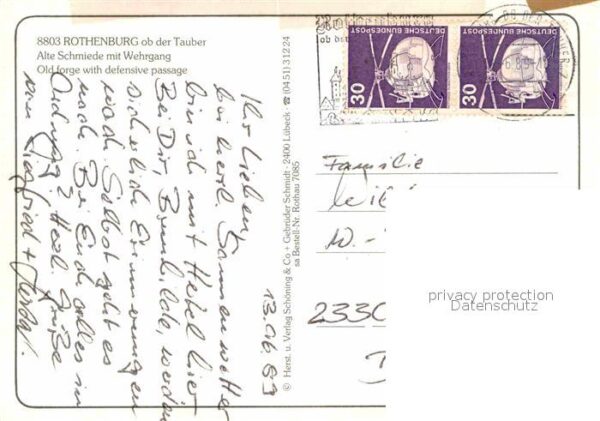 8803 ROTHENBURG ob der Tauber
Alte Schmiede mit Wehrgang
Old forge with defensive passage
DEUTSCHE BUNDESPOST
30
DEUTSCHE BUNDESPOST
30
ob der
13.06.83
Ihr Lieben!
bei herrl. Sonnenwetter
bin ich mit Hebel hier
Bei Dir, Brunhilde, werden
sicherlich Erinnerungen
wach. Selbst geht es
noch. Bei Euch alles in
Ordnung? Herzl. Grüße
von Siegfried +
© Herst. u. Verlag Schöning & Co + Gebrüder Schmidt · 2400 Lübeck ☎ (04 51) 3 12 24
sa Bestell-Nr. Rothau 7085
Familie
W.
2330
privacy protection
Datenschutz